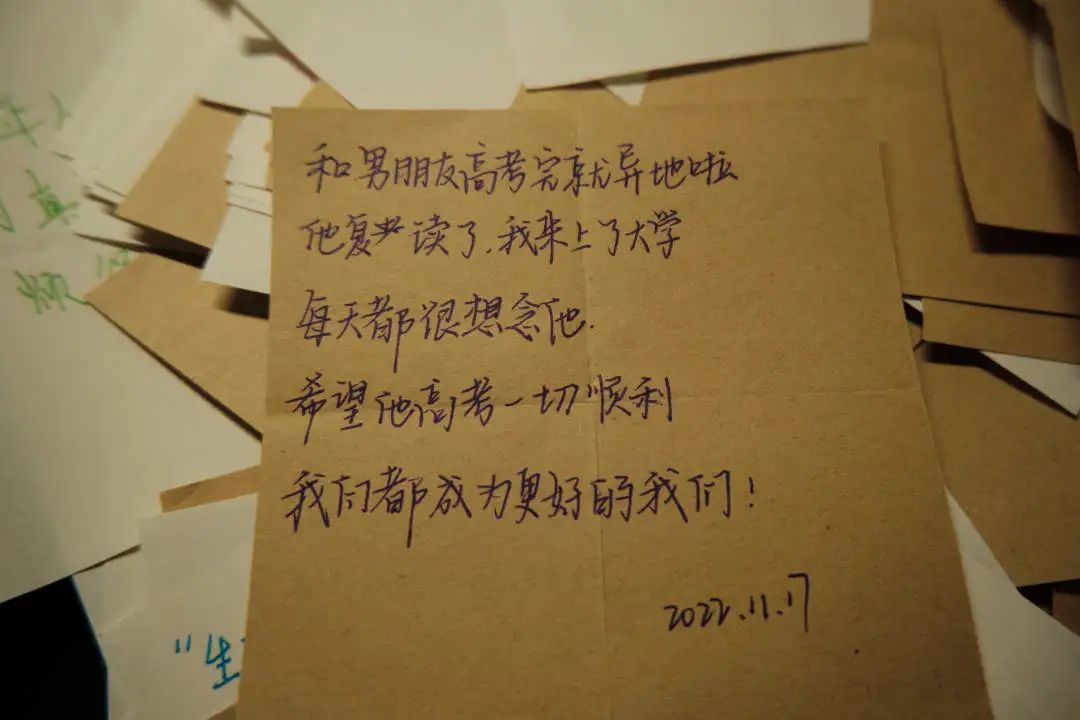 和男朋友高考完就异地啦
他复读了,我来上了大学
每天都很想念他.
希望他高考一切顺利
我们都成为更好的我们!
2022.11.17
"生
真